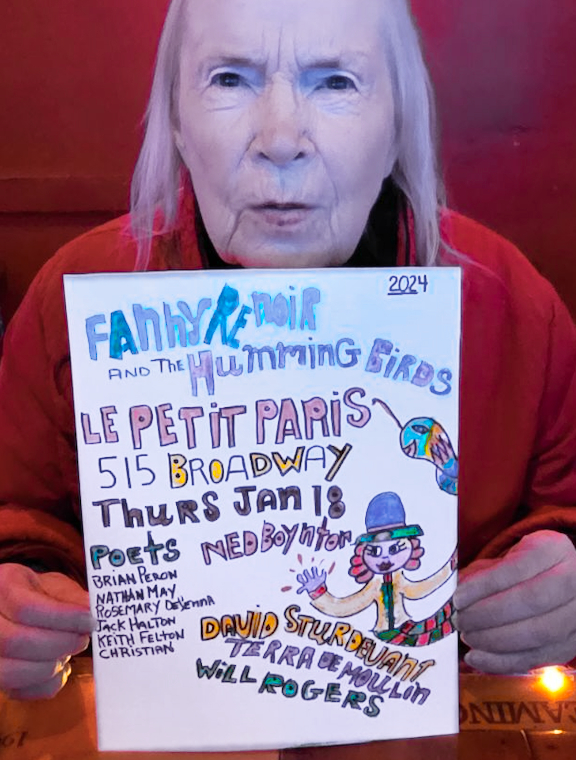 2024
FANNY RENOIR
AND THE HUMMING BIRDS
LE PETIT PARIS
515 BROADWAY
THURS JAN 18
NED BOYNTON
POETS
BRIAN PERON
NATHAN MAY
ROSEMARY DEVENNA
JACK HALTON
KEITH FELTON
CHRISTIAN
DAVID STURDEVANT
TERRA DE MOULIN
WILL ROGERS